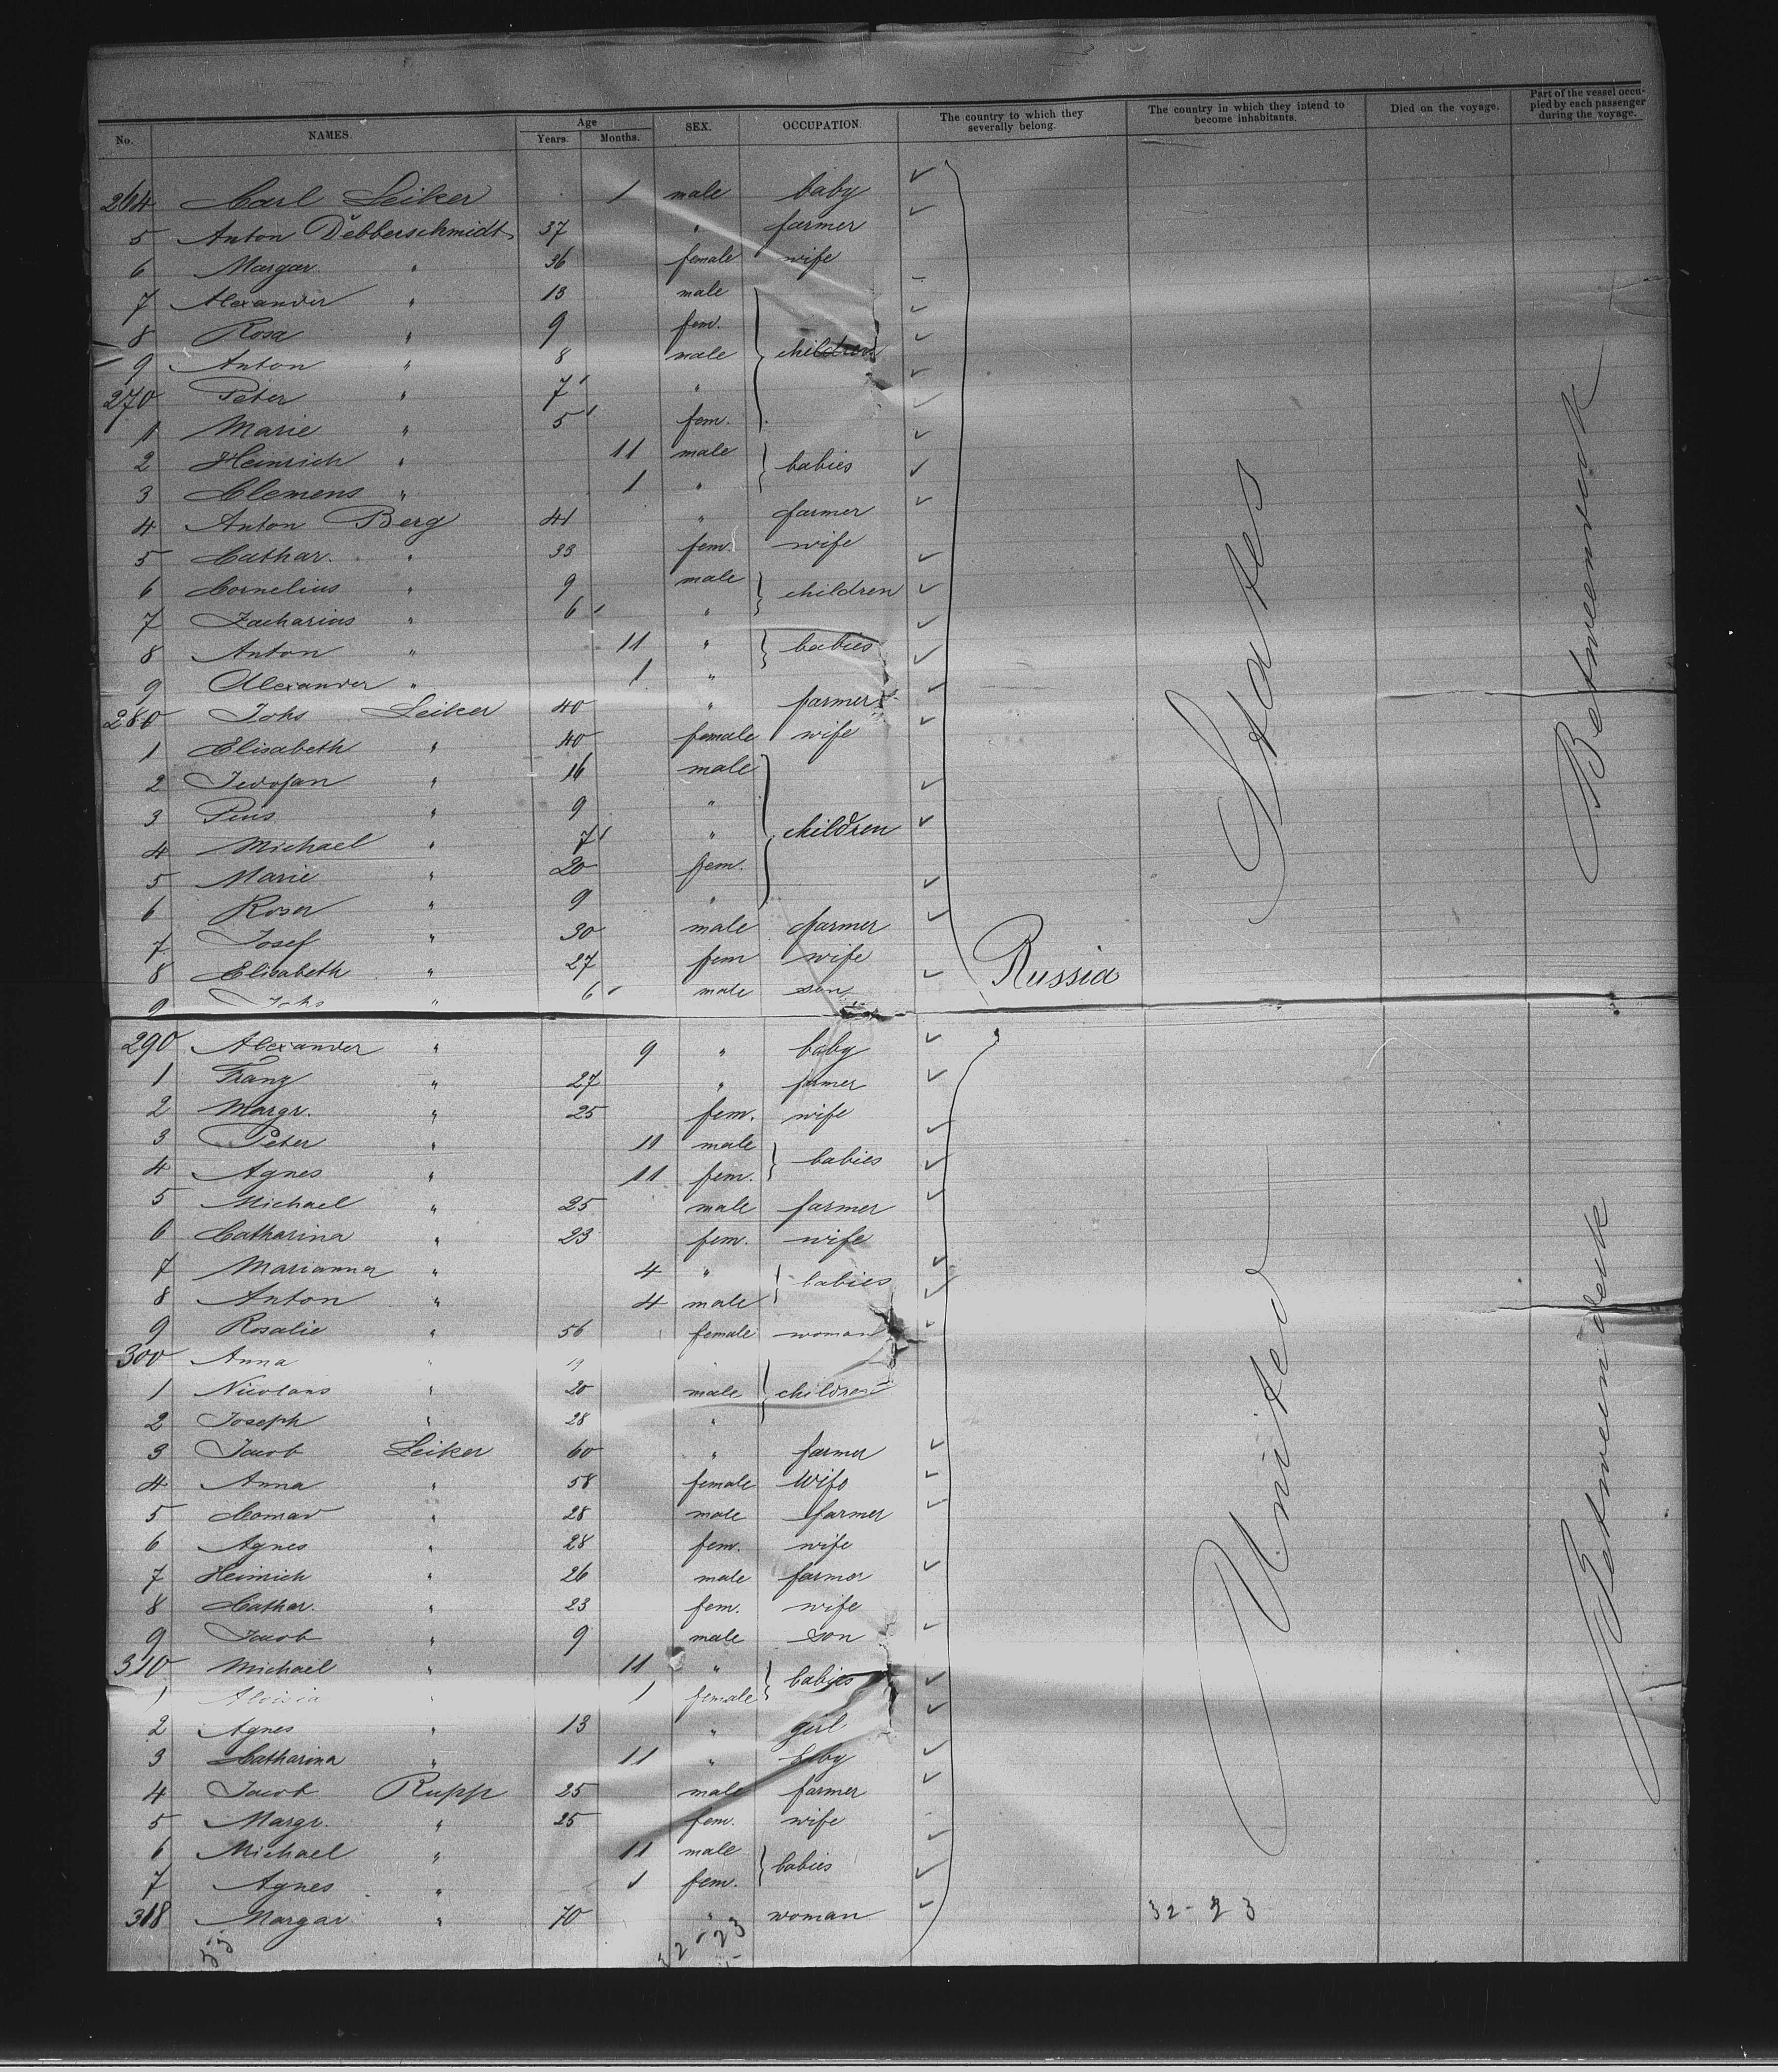 No. NAMES. Age Years. Months. SEX. OCCUPATION. The country to which they severally belong. The country in which they intend to become inhabitants. Died on the voyage. Part of the vessel occupied by each passenger during the voyage.
264 Carl Leiker 1 male baby
5 Anton Debberschmidt 37 " farmer
6 Margar " 36 female wife
7 Alexander " 13 male
8 Rosa " 9 fem.
9 Anton " 8 male children
270 Peter " 7 "
1 Marie " 5 fem.
2 Heinrich " 11 male babies
3 Clemens " 1 "
4 Anton Berg 41 " farmer
5 Cathar. " 33 fem. wife
6 Cornelius " 9 male children
7 Zacharias " 6 "
8 Anton " 11 " babies
9 Alexander " 1 "
280 Johs Leiker 40 " farmer
1 Elisabeth " 40 female wife
2 " 16 male
3 Pius " 9 "
4 Michael " 7 " children
5 Marie " 20 fem.
6 Rosa " 9 "
7 Josef " 30 male farmer
8 Elisabeth " 27 fem wife Russia
9 Johs " 6 male son
290 Alexander " 9 " baby
1 Franz " 27 " farmer
2 Margr. " 25 fem. wife
3 Peter " 11 male babies
4 Agnes " 11 fem.
5 Michael " 25 male farmer
6 Catharina " 23 fem. wife
7 Marianna " 4 " babies
8 Anton " 4 male
9 Rosalie " 56 female woman
300 Anna " "
1 Nicolaus " 20 male children
2 Joseph " 28 "
3 Jacob Leiker 60 " farmer
4 Anna " 58 female Wife
5 Conrad " 28 male farmer
6 Agnes " 28 fem. wife
7 Heinrich " 26 male farmer
8 Cathar. " 23 fem. wife
9 Jacob " 9 male son
310 Michael " 11 " babies
1 Aloisia " 1 female
2 Agnes " 13 " girl
3 Catharina " 11 " baby
4 Jacob Rupp 25 male farmer
5 Margr. " 25 fem. wife
6 Michael " 11 male babies
7 Agnes " 1 fem.
318 Margar " 70 " woman
United States
Betweendeck Betweendeck
32-23
55
32-23